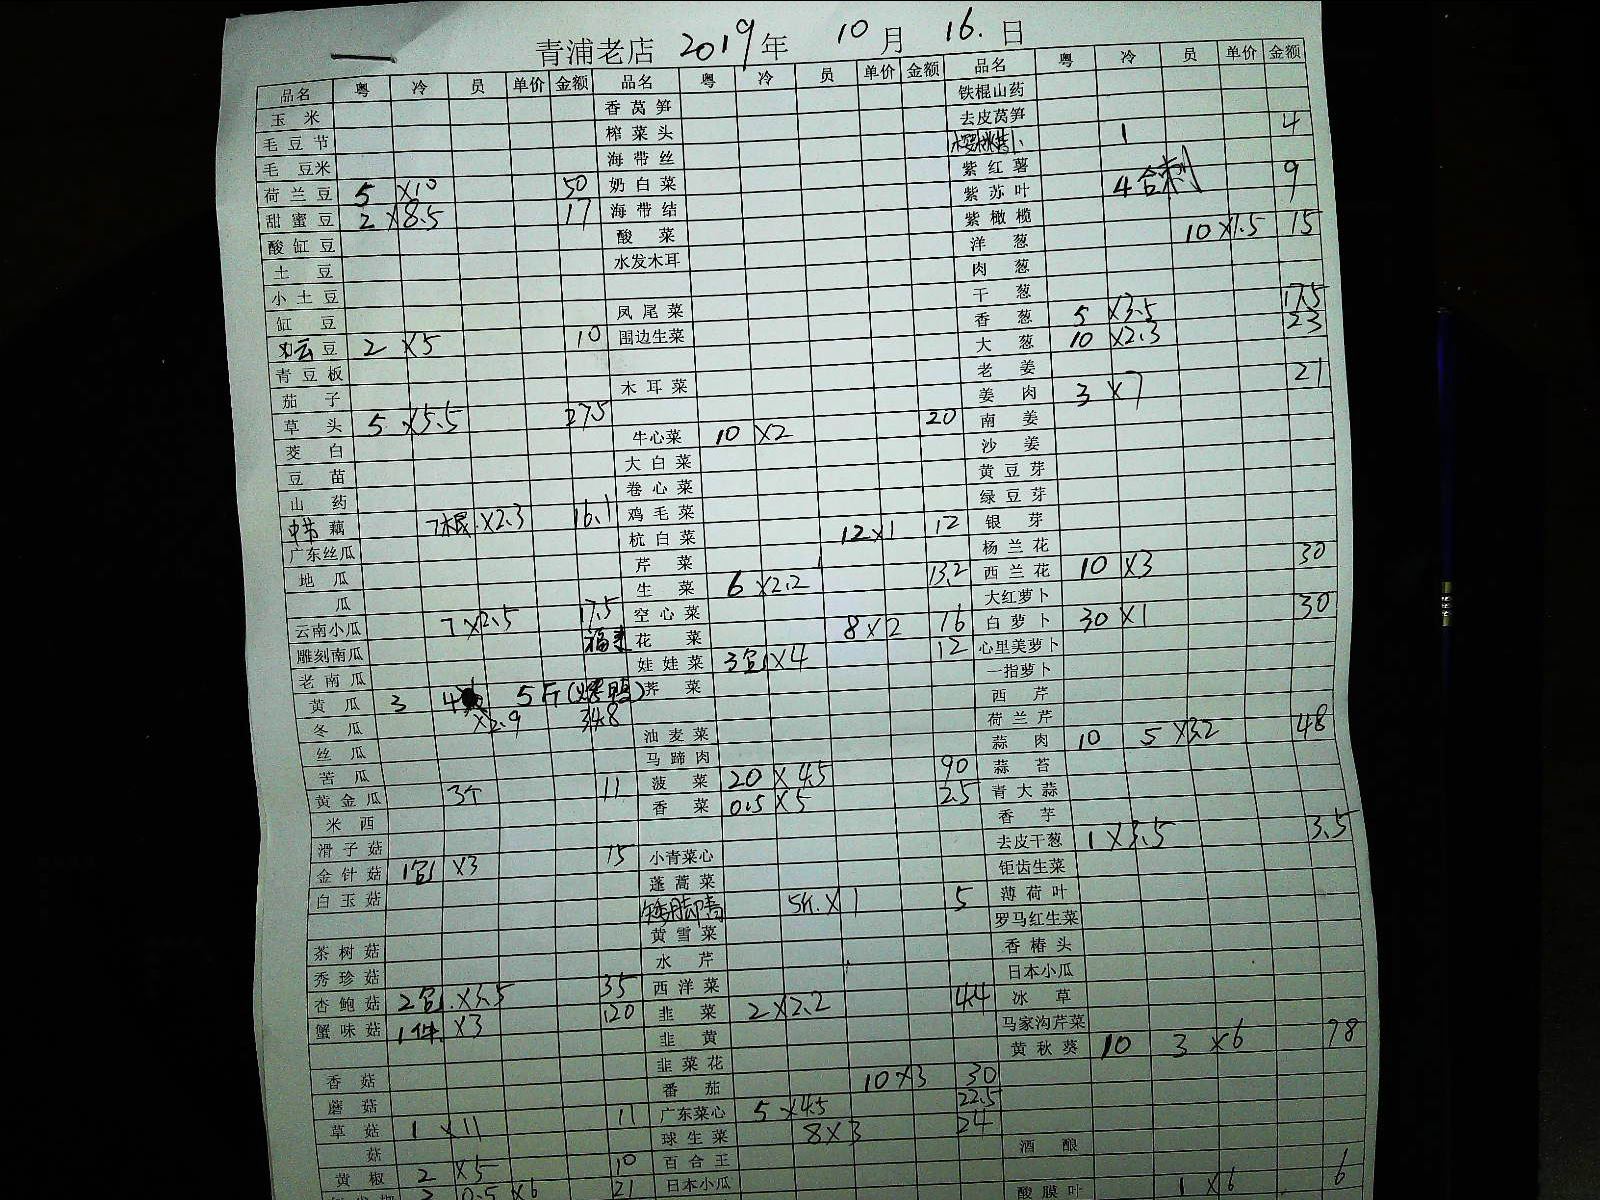 青浦老店 2019年 10月 16.日
品名 粤 冷 员 单价 金额
玉米
毛豆节
毛豆米
荷兰豆 5 ×10 50
甜蜜豆 2 ×8.5 17
酸缸豆
土豆
小土豆
缸豆
豆 2 ×5 10
青豆板
茄子
草头 5 ×5.5 27.5
茭白
豆苗
山药
中节藕 7根 ×2.3 16.1
广东丝瓜
地瓜
瓜
云南小瓜 7×2.5 17.5
雕刻南瓜
老南瓜
黄瓜 3 4 5斤(烤鸭)
冬瓜 ×2.9 34.8
丝瓜
苦瓜
黄金瓜 3个 11
米西
滑子菇
金针菇 1包 ×3 15
白玉菇
茶树菇
秀珍菇
杏鲍菇 2包 ×3.5 35
蟹味菇 1件 ×3 120
香菇
蘑菇
草菇 1 ×11 11
菇
黄椒 2 ×5 10
2 0.5 ×6 21
品名 粤 冷 员 单价 金额
香莴笋
榨菜头
海带丝
奶白菜
海带结
酸菜
水发木耳
凤尾菜
围边生菜
木耳菜
牛心菜 10 ×2 20
大白菜
卷心菜
鸡毛菜
杭白菜 12×1 12
芹菜
生菜 6 ×2.2 13.2
空心菜
花菜 8×2 16
娃娃菜 3包×4 12
荠菜
油麦菜
马蹄肉
菠菜 20 ×4.5 90
香菜 0.5×5 2.5
小青菜心
蓬蒿菜
矮脚青 5斤.×1 5
黄雪菜
水芹
西洋菜
韭菜 2×2.2 4.4
韭黄
韭菜花
番茄 10×3 30
广东菜心 5 ×4.5 22.5
球生菜 8×3 24
百合王
日本小瓜
品名 粤 冷 员 单价 金额
铁棍山药
去皮莴笋
1 4
紫红薯
紫苏叶 4合 9
紫橄榄
洋葱 10×1.5 15
肉葱
干葱
香葱 5 ×3.5 17.5
大葱 10 ×2.3 23
老姜
姜肉 3 ×7 21
南姜
沙姜
黄豆芽
绿豆芽
银芽
杨兰花
西兰花 10 ×3 30
大红萝卜
白萝卜 30×1 30
心里美萝卜
一指萝卜
西芹
荷兰芹
蒜肉 10 5 ×3.2 48
蒜苔
青大蒜
香芋
去皮干葱 1×3.5 3.5
钜齿生菜
薄荷叶
罗马红生菜
香椿头
日本小瓜
冰草
马家沟芹菜
黄秋葵 10 3 ×6 78
酒酿
酸膜叶 1×6 6